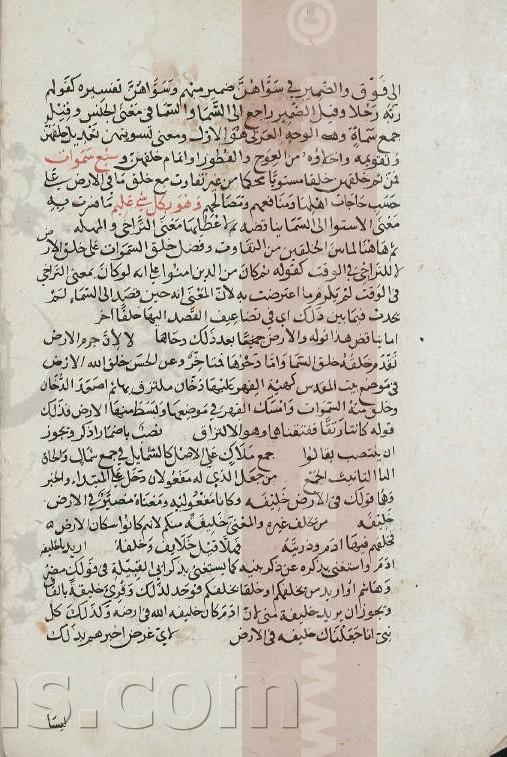 الى فوق والضمير في سواهن ضمير مبهم وسواهن تفسيره كقولهم
ربه رجلا وقيل الضمير راجع الى السما والسما في معنى الجنس وقيل
جمع سماة وهذا الوجه العربي هو الاول ومعنى تسويتهن تعديل خلقهن
وتقويمه واخلاؤه من العوج والفطور او اتمام خلقهن وسبع سموات
فمن ثم خلقهن خلقا مستويا محكما من غير تفاوت مع خلق ما في الارض على
حسب حاجات اهلها ومنافعهم ومصالحهم وهو بكل شي عليم ما فسرت به
معنى الاستوا الى السما يناقضه ثم لاعطائها معنى التراخي والمهله
ثم هاهنا لما بين الخلقين من التفاوت وفضل خلق السموات على خلق الارض
لا للتراخي في الوقت كقوله ثم كان من الذين امنوا على انه لو كان بمعنى التراخي
في الوقت لم يلزم ما اعترضت به لان المعنى انه حين قصد الى السماء لم
يحدث فيما بين ذلك اي في تضاعيف القصد اليها خلقا اخر
اما يناقض هذا قوله والارض بعد ذلك دحاها لا لان جرم الارض
تقدم خلقه خلق السما واما دحوها فمتاخر وعن الحسن خلق الله الارض
في موضع بيت المقدس كهيئة الفهر عليها دخان ملتزق بها ثم اصعد الدخان
وخلق منه السموات وامسك الفهر في موضعها وبسط منها الارض فذلك
قوله كانتا رتقا ففتقناهما وهو الالتزاق نصب باضمار اذكر ويجوز
ان ينتصب بقالوا جمع ملاك على الاصل كالشمايل في جمع شمال والحاق
التا لتانيث الجمع من جعل الذي له مفعولان دخل على المبتدا والخبر
وهما قوله في الارض خليفه وكانا مفعوليه ومعناه مصير في الارض
خليفه من يخلف غيره والمعنى خليفه منكم لانهم كانوا سكان الارض
فخلفهم فيها ادم وذريته فهلا قيل خلايف وخلفا اريد بالخليفه
ادم واستغنى بذكره عن ذكر بنيه كما يستغنى بذكر ابي القبيلة في قولك مضر
وهاشم او اريد من يخلفكم او خلقا يخلفكم فوحد لذلك وقرئ خليقه بالقاف
ويجوز ان يريد خليفة مني لان ادم كان خليفه الله في ارضه وكذلك كل
نبي انا جعلناك خليفه في الارض لاي غرض اخبرهم بذلك
ليسا
ns.com